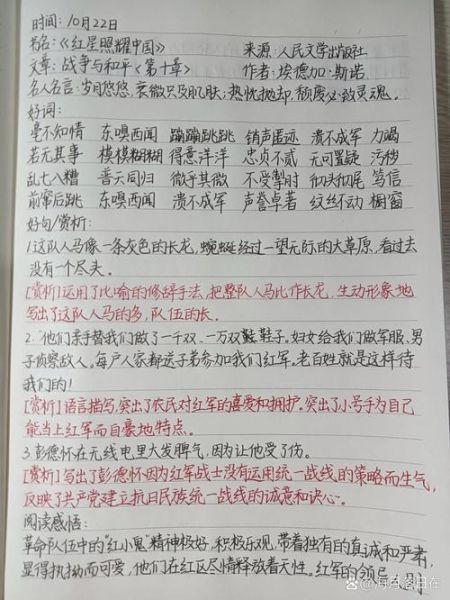 时间：10月22日
书名：《红星照耀中国》 来源：人民文学出版社
文章：战争与和平《第十章》 作者：埃德加·斯诺
名人名言：岁月悠悠，衰微只及肌肤；热忱抛却，颓废必致灵魂。
好词：
毫不知情 东嗅西闻 蹦蹦跳跳 销声匿迹 溃不成军 力竭
若无其事 模模糊糊 得意洋洋 忠贞不贰 无可置疑 污秽
乱七八糟 普天同归 微乎其微 不受掣肘 彻头彻尾 笃信
前窜后跳 东嗅西闻 溃不成军 声誉卓著 纹丝不动 橱窗
好句/赏析：
1.这队人马像一条灰色的长龙，蜿蜒经过一望无际的大草原，看过去
没有一个尽头。
[赏析]运用了比喻的修辞手法，把整队人马比作长龙，生动形象地
写出了这队人马的多，队伍的长。
2."他们亲手替我们做了一千双、一万双鞋子。妇女给我们做军服，男
子侦察敌人。每户人家都送子弟参加我们红军。老百姓就是这样待
我们的！
[赏析]语言描写，突出了农民对红军的喜爱和拥护。突出了小号手为自己
能当上红军而自豪地特点。
3.彭德怀在无线电里大发脾气，因为让他受了伤。
[赏析]写出了彭德怀因为红军战士没有运用统一战线的策略而生气，
反映了共产党建立抗日民族统一战线的诚意和决心。
阅读感悟：
革命队伍中的"红小鬼"精神极好，积极乐观，带着独有的真诚和严肃，
显得执拗而可爱，他们在红区尽情释放着天性。红军的领
海名落日在